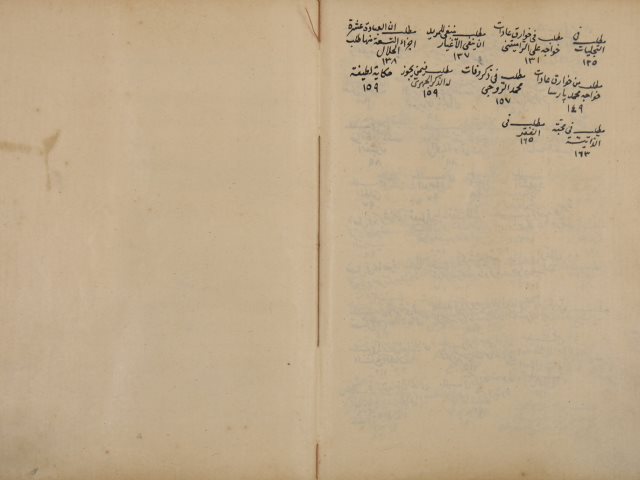 مطلب في التجليات ١٢٥
مطلب في خوارق عادات خواجه علي الراميتني ١٣١
مطلب ينبغي للمريد ان ينفي الاغيار ١٣٧
مطلب ان العبادة عشرة اجزاء التسعة منها طلب الحلال ١٣٨
مطلب من خوارق عادات خواجه محمد پارسا ١٤٩
مطلب في ذكر وفات محمد الروجي ١٥٧
مطلب فيمن يجوز له الذكر ١٥٩
حكاية لطيفة ١٥٩
مطلب في محبته الذاتية ١٦٣
مطلب في الفقر ١٦٥